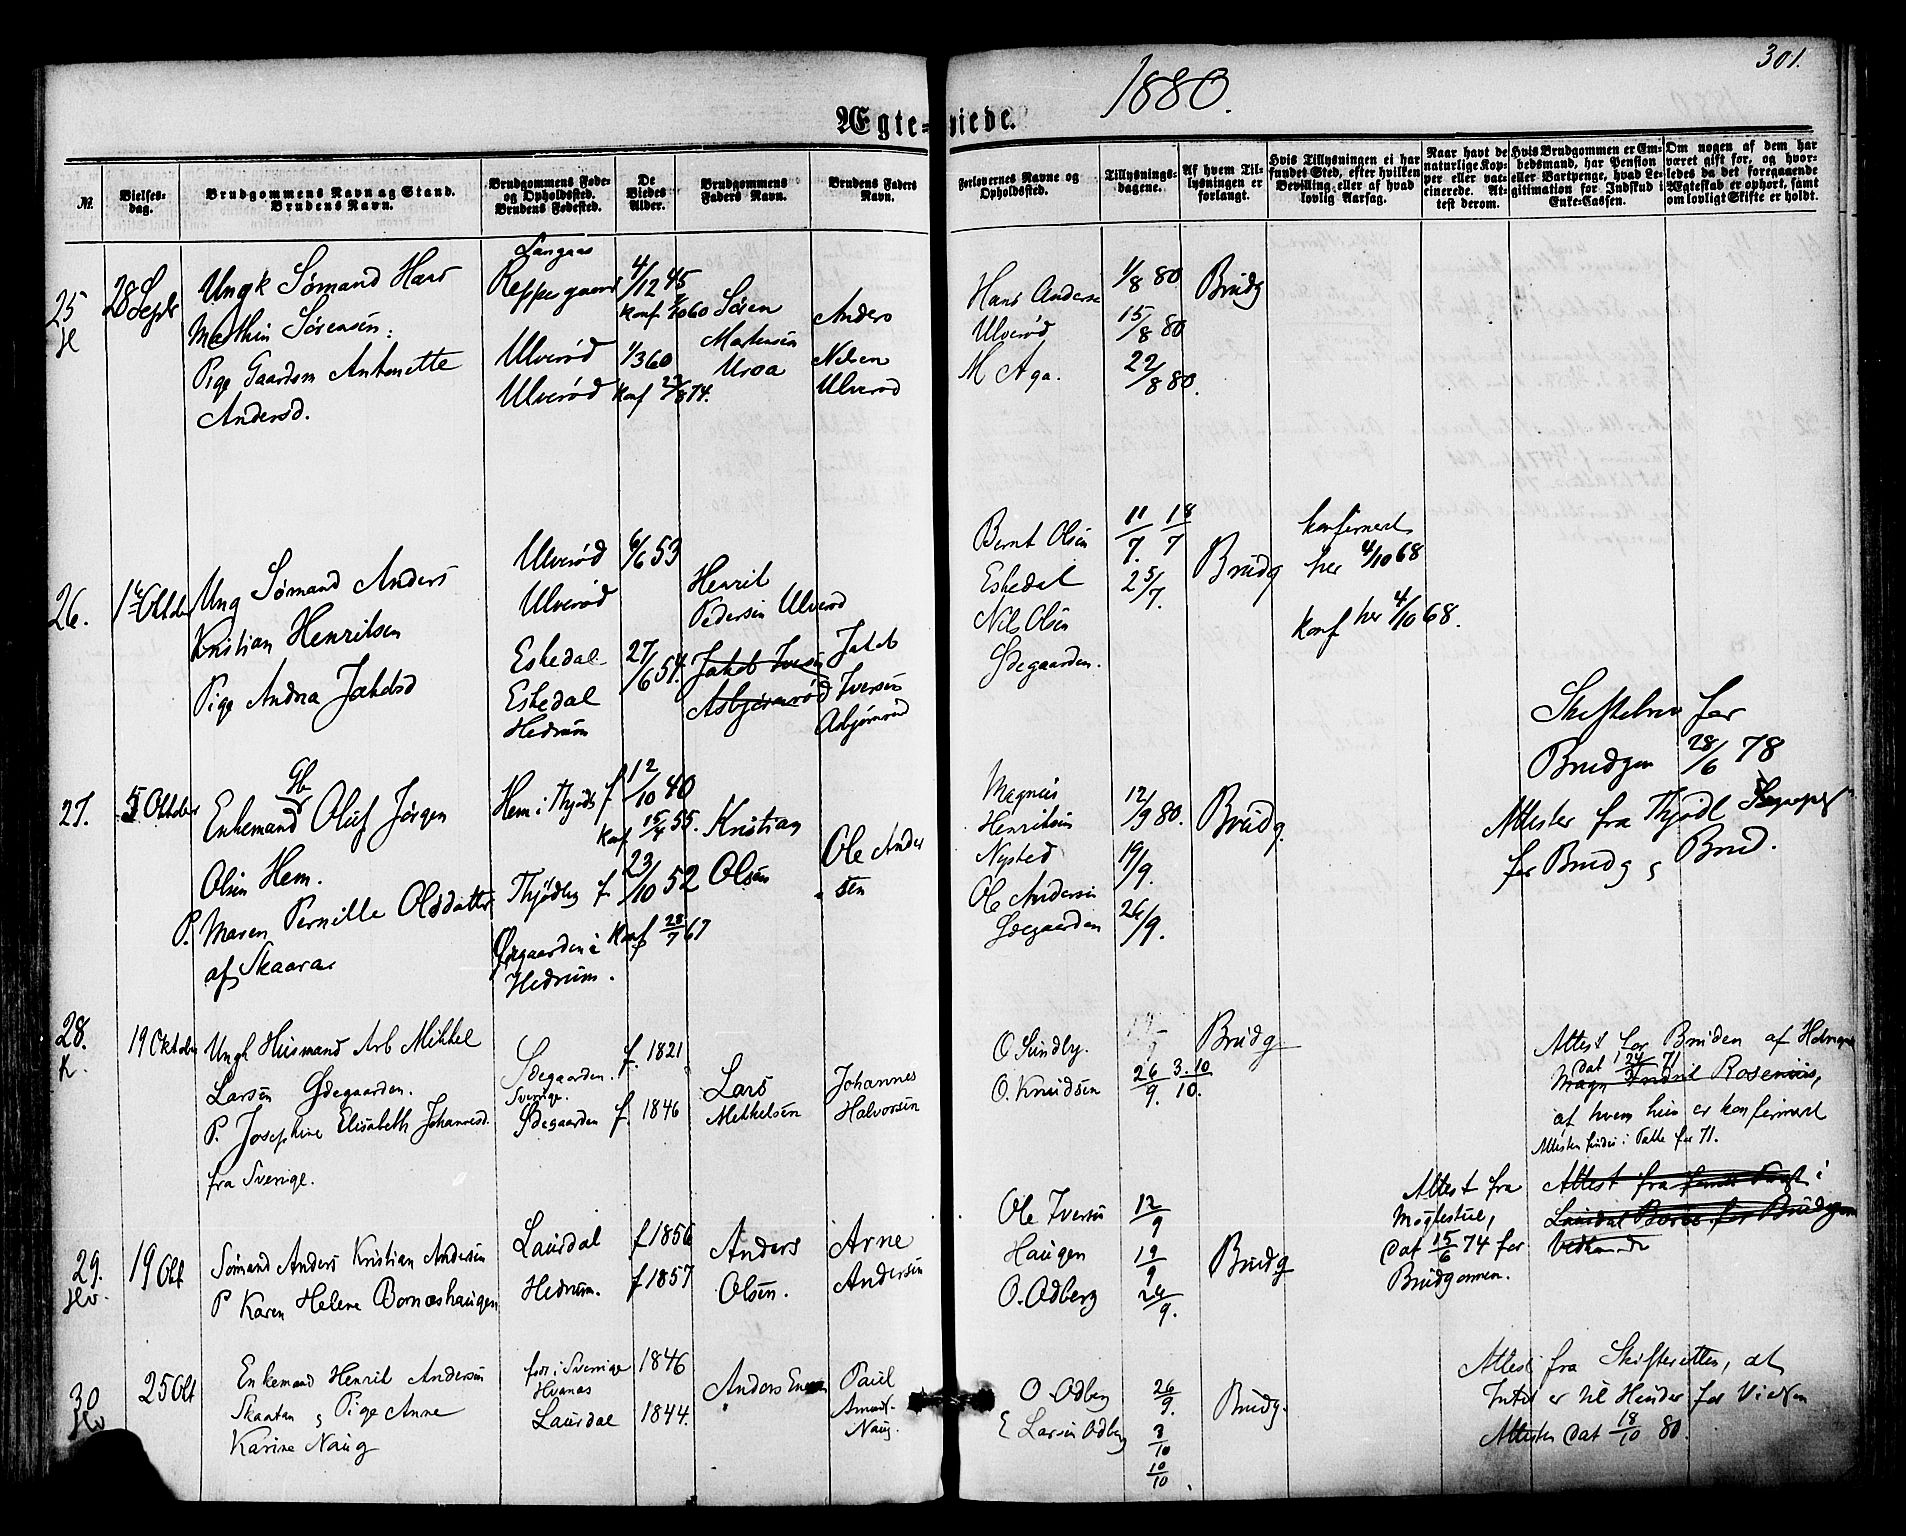 301.
1880.
Ægte-viede.
No.
Vielses-dag.
Brudgommens Navn og Stand.
Brudens Navn.
Brudgommens Føde- og Opholdssted.
Brudens Fødested.
De Viedes Alder.
Brudgommens Faders Navn.
Brudens Faders Navn.
Forlovernes Navne og Opholdssted.
Tillysnings-dagene.
Af hvem Tillysningen er forlangt.
Hvis Tillysningen ei har fundet Sted, efter hvilken Bevilling eller af hvad lovlig Aarsag.
Naar havt de naturlige Kopper eller vaccinerede. Attest derom.
Hvis Brudgommen er Embedsmand, har Pension eller Vartpenge, hvad Legitimation for Indskud i Enke-Cassen.
Om nogen af dem har været gift før, og hvorledes da det foregaaende Ægteskab er ophørt, samt om lovligt Skifte er holdt.
25
28 Septr
Ungk Sømand Hans
Mathin Sørensen:
Pige Gaardsm Antonette
Andersd.
Langaas
Reppegaard
Ulverød
Ulverød
4/12 45
1/3 60
Konf 27/8 74.
Søren
Martensen
Uroa
Anders
Nelsen
Ulverød
Hans Anderse
Ulverød
M Aga.
1/8 80
15/8 80
22/8 80.
Brudg
26.
1 Oktober
Ung Sømand Anders
Kristian Henriksen
Pige Andrea Jakobsd
Ulverød
Ulverød
Eskedal
Eskedal
Hedrum
6/6 53
27/6 54.
Henrik
Pedersen Ulverød
Jakob Iversen
Asbjørnrød
Jakob
Iversen
Asbjørnrød
Bernt Olsen
Eskedal
Nils Olsen
Ødegaarden.
11/7. 18/7
25/7.
Brudg
konfirmert
her 4/10 68
Konf her 4/10 68.
27.
5 Oktober
Gb
Enkemand Oluf Jørgen
Olsen Hem.
P. Maren Pernille Olsdatter
af Skaarar
Hem i Thjøds
Thjødling
Ødegaarden i
Hedrum.
f 12/10 40
Konf 15/4 55.
f 23/10 52
Konf 28/7 67
Kristian
Olsen
Ole Ander
sen
Magnus
Henriksen
Nysted
Ole Andersen
Ødegaarden
12/9 80.
19/9.
26/9.
Brudg.
Skiftebrev for
Brudgom 28/6 78
Attester fra Thjødl
for Brudg & Brud.
28.
K.
19 Oktober
Ungk Husmand Arb Mikkel
Larsen Ødegaarden.
P. Josephine Elisabeth Johannesd.
fra Sverige.
Ødegaarden.
Sverige.
Ødegaarden
f. 1821
f 1846
Lars
Mikkelsen
Johannes
Halvorsen
O Sundby.
O. Knudsen
26/9. 3.10/10.
Brudg
Attest for Bruden af
dat 24/ 71
Rosenius,
af hvem hun er konfirmert
Attesten findes i Palle for 71.
29.
Hv.
19 Okt
Sømand Anders Kristian Andersen
P Karen Helene Bornæshaugen
Laurdal
Hedrum.
f 1856
f 1857
Anders
Olsen.
Arne
Andersen
Ole Iversen
Haugen
O. Odberg
12/9
19/9
26/9.
Brudg
Attest fra
dat 15/6 74 for
Brudgommen.
Attest fra
Laurdal for Brudgom
30
Hv
25 Okt
Enkemand Henrik Andersen
Skaatan & Pige Anne
Karine Naug
født i Sverige
Laurdal
1846
1844.
Anders
Paul
Naug.
O Odberg
E Larsen Odberg
26/9.
3/10
10/10.
Brudg.
Attest fra Skifteretten, at
Intet er til Hinder for Vielsen
Attesten dat 18/10 80.